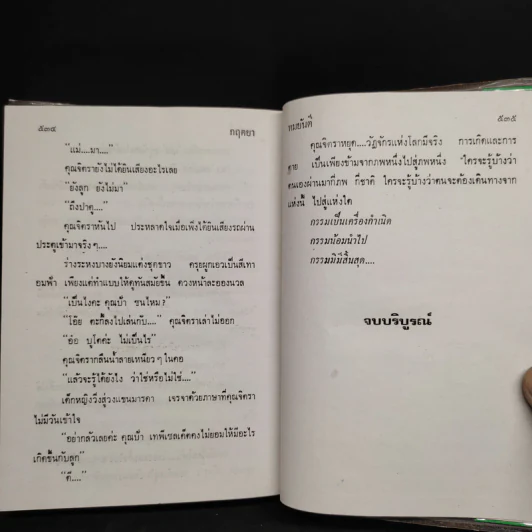 ๕๓๔ กฤตยา
"แม่....มา...."
คุณจิตรายังไม่ได้ยินเสียงอะไรเลย
"ยังลูก ยังไม่มา"
"ถึงปาตู...."
คุณจิตราหันไป ประหลาดใจเมื่อเพิ่งได้ยินเสียงรถผ่าน
ประตูเข้ามาจริง ๆ....
ร่างระหงบางยังนิยมแต่งชุดขาว ครุยผูกเอวเป็นสีเทา
อมฟ้า เพียงแต่ทำแบบให้ดูทันสมัยขึ้น ดวงหน้าละอองนวล
"เป็นไงคะ คุณป้า ซนไหม?"
"โอ๊ย ตะกี้ลงไปเล่นกับ...." คุณจิตราเล่าไม่ออก
"อ๋อ บุโคค่ะ ไม่เป็นไร"
คุณจิตรากลืนน้ำลายเหนียว ๆ ในคอ
"แล้วจะรู้ได้ยังไง ว่าใช่หรือไม่ใช่...."
เด็กหญิงวิ่งสู่วงแขนมารดา เจรจาด้วยภาษาที่คุณจิตรา
ไม่มีวันเข้าใจ
"อย่ากลัวเลยค่ะ คุณป้า เทพีเซลเค็ตคงไม่ยอมให้มีอะไร
เกิดขึ้นกับลูก"
"ดี...."
ทมยันตี ๕๓๕
คุณจิตราหยุด....วัฏจักรแห่งโลกมีจริง การเกิดและการ
ตาย เป็นเพียงข้ามจากภพหนึ่งไปสู่ภพหนึ่ง ใครจะรู้บ้างว่า
ตนเองผ่านมากี่ภพ กี่ชาติ ใครจะรู้บ้างว่าตนจะต้องเดินทางจาก
แห่งนี้ ไปสู่แห่งใด
กรรมเป็นเครื่องกำเนิด
กรรมน้อมนำไป
กรรมมิมีสิ้นสุด....
จบบริบูรณ์